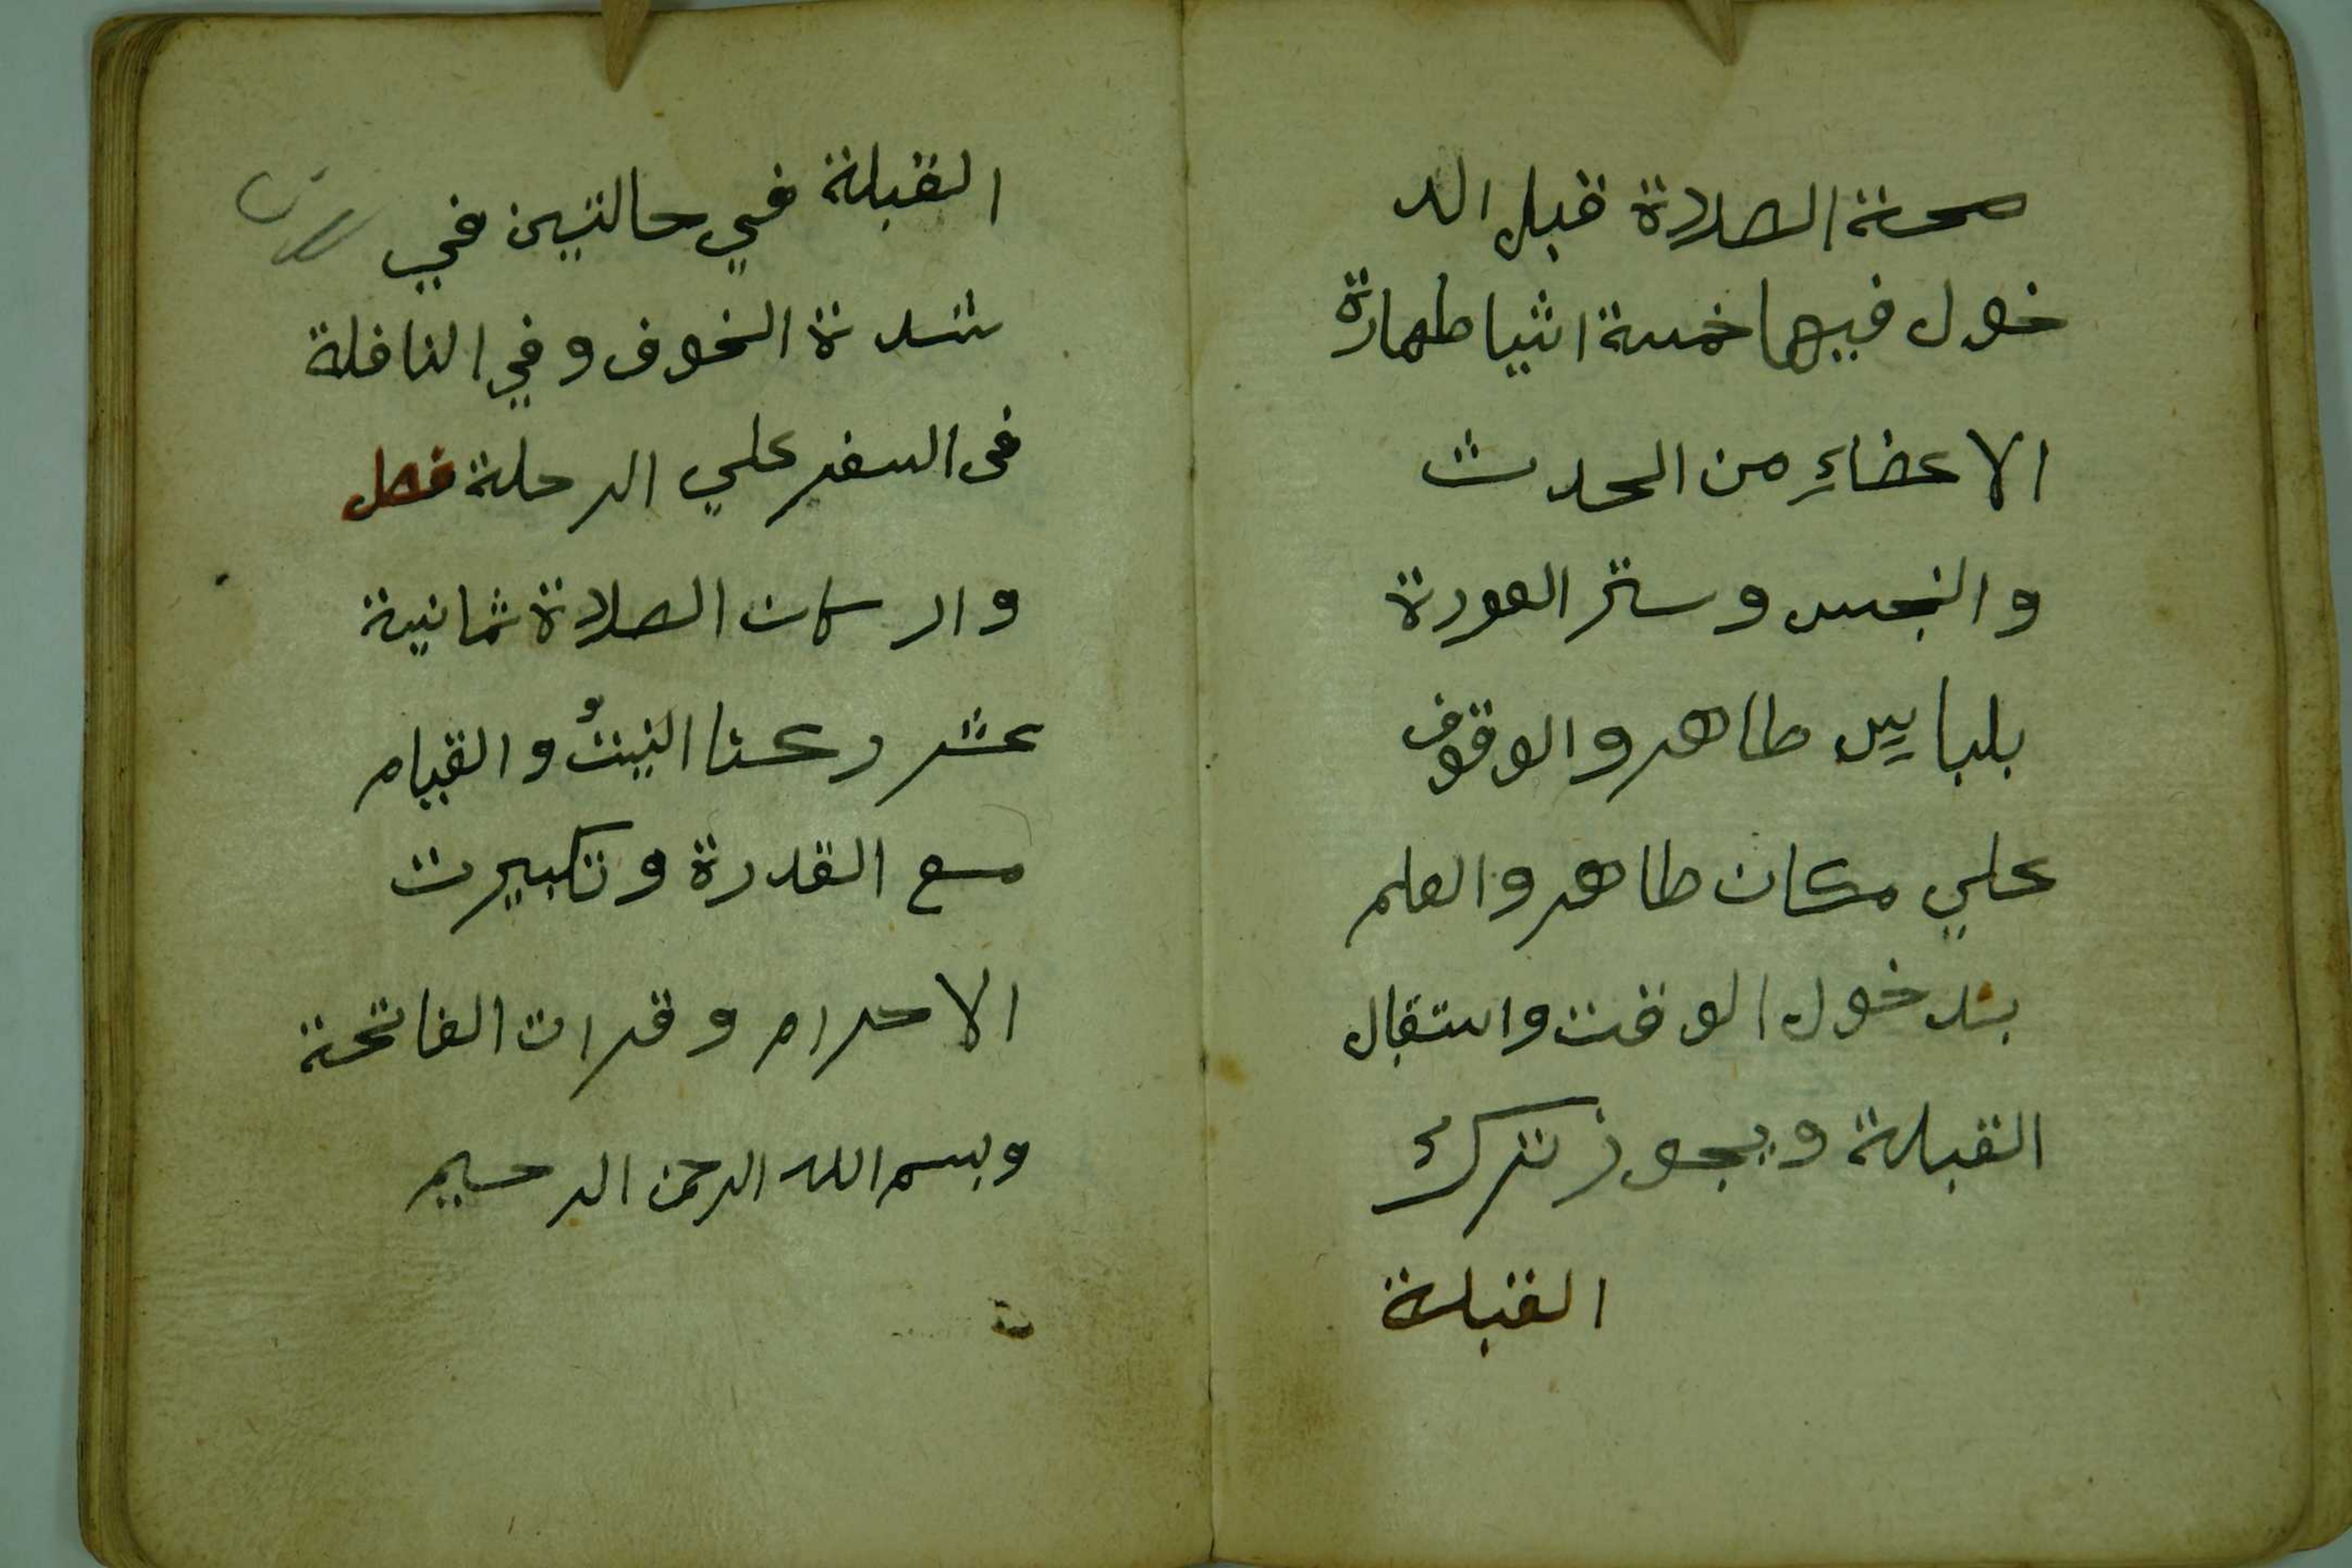 صحة الصلاة قبل الد
خول فيها خمسة اشيا طهارة
الاعضاءِ من الحدث
والنجس وستر العورة
بلباس طاهر والوقوف
علي مكان طاهر والعلم
بدخول الوقت واستقبال
القبلة ويجوز ترك
القبلة
القبلة في حالتين في
شدة الخوف وفي النافلة
فى السفر علي الرحلة فصل
واركان الصلاة ثمانية
عشر ركنا النيتُ والقيام
مع القدرة وتكبيرت
الاحرام وقرات الفاتحة
وبسم الله الرحمن الرحيم